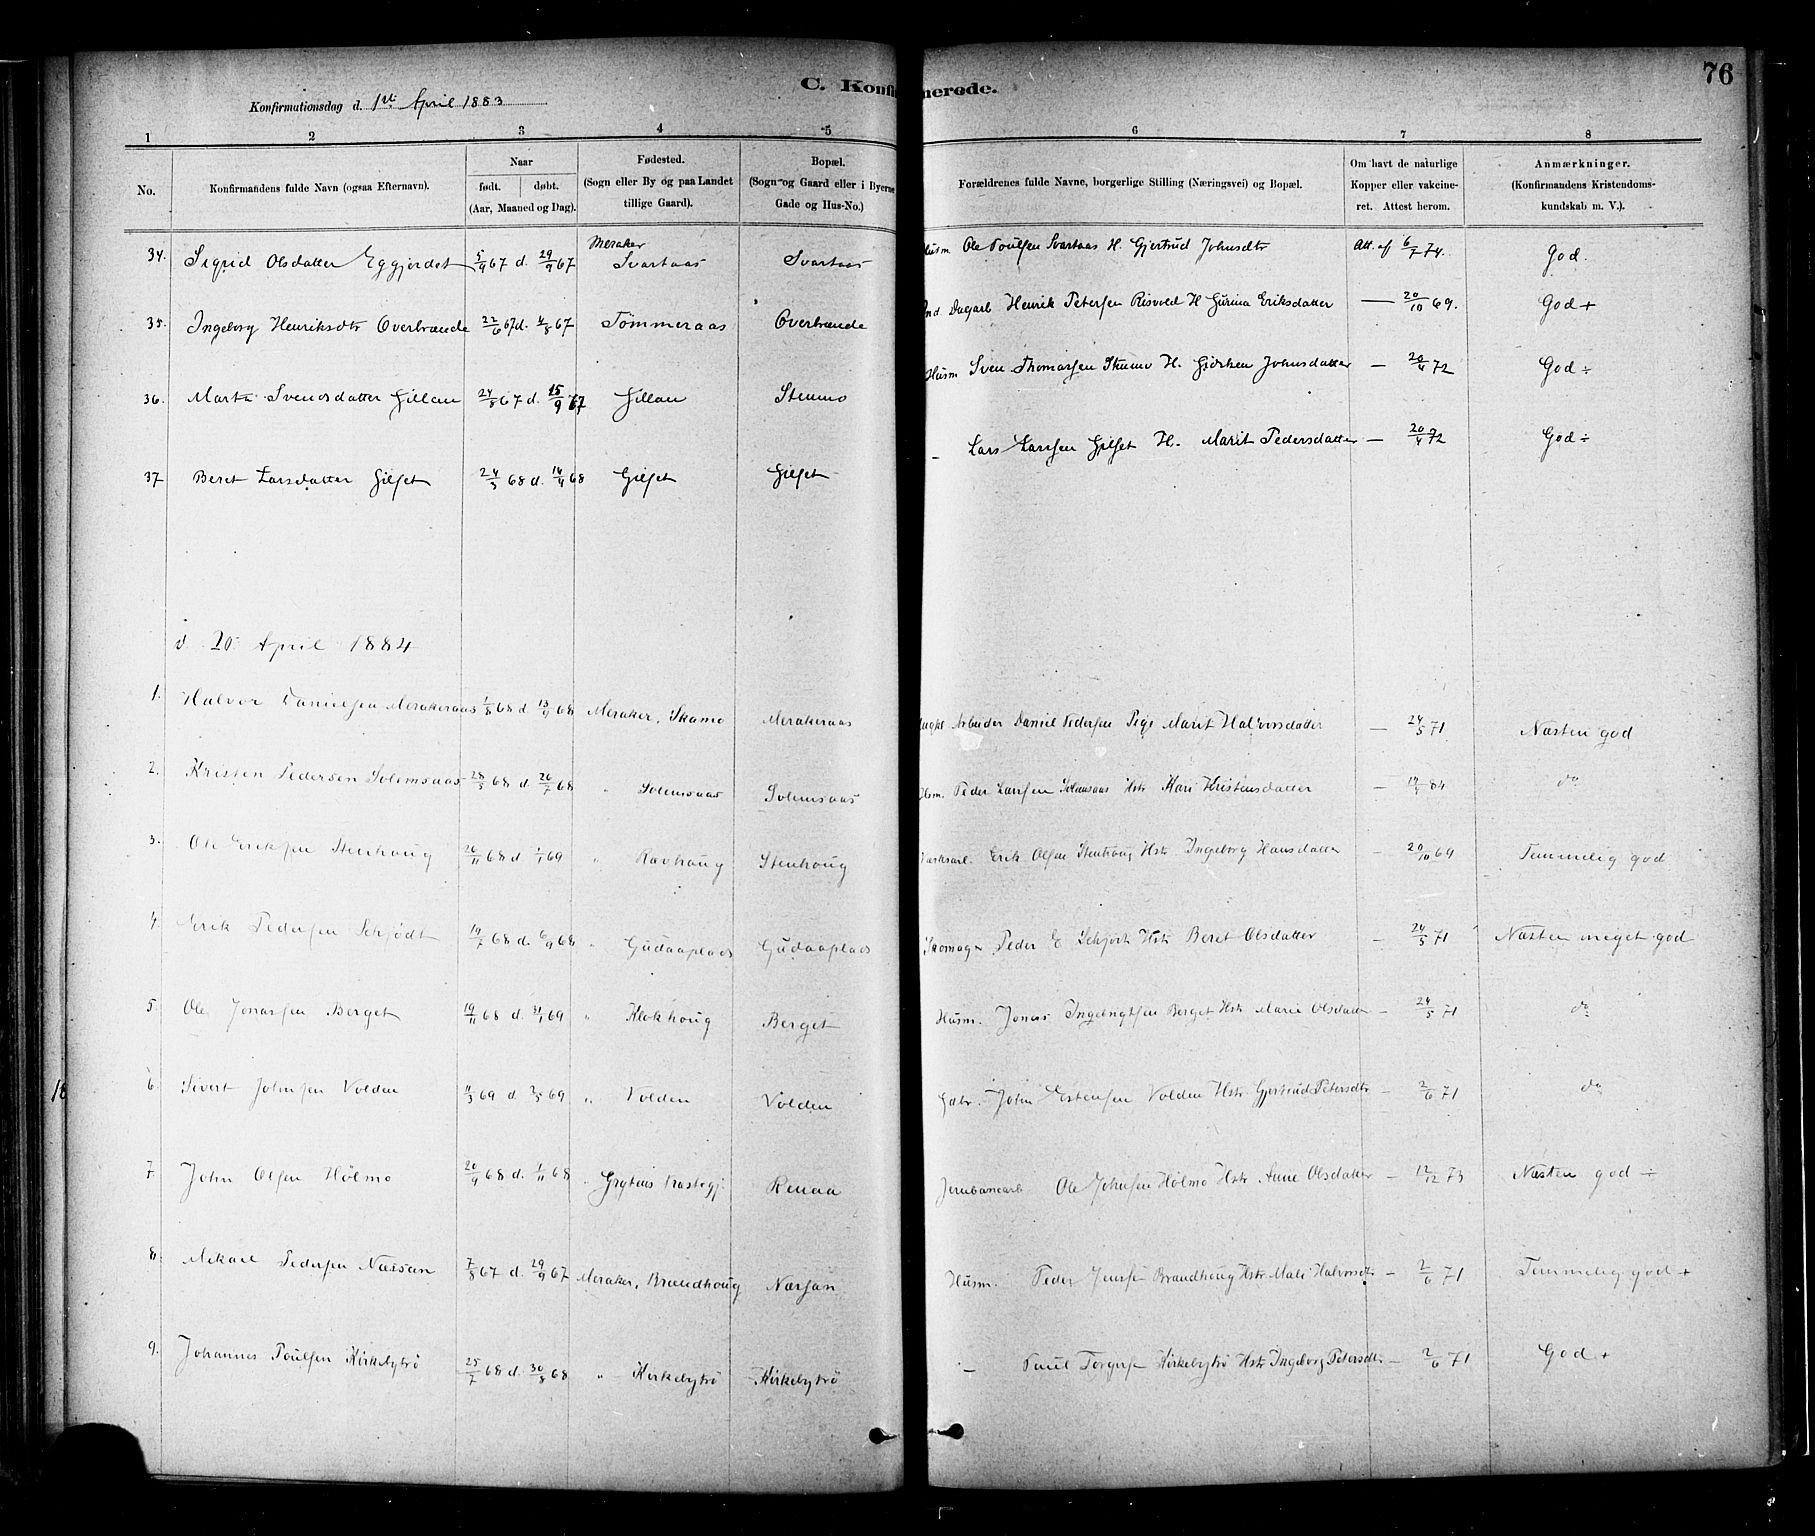 76
C. Konfi merede.
Konfirmationsdag d. 1ste April 1883
1 2 3 4 5 6 7 8
No. Konfirmandens fulde Navn (ogsaa Efternavn). Naar født. døbt. (Aar, Maaned og Dag). Fødested. (Sogn eller By og paa Landet tillige Gaard). Bopæl. (Sogn og Gaard eller i Byerne Gade og Hus-No.) Forældrenes fulde Navne, borgerlige Stilling (Næringsvei) og Bopæl. Om havt de naturlige Kopper eller vakcineret. Attest herom. Anmærkninger. (Konfirmandens Kristendomskundskab m. V.).
34. Sigrid Olsdatter Eggjerdet 5/9 67 d. 29/9 67 Meraker Svartaas Svartaas Husm Ole Poulsen Svartaas H. Gjertrud Johnsdtr Att. af 6/7 74. God.
35. Ingeborg Henriksdtr Overbrænde 22/6 67 d. 4/8 67 Tømmeraas Overbrænde Ind. Dagarb Henrik Petersen Risvold H Gurina Eriksdatter — 20/10 69. God +
36. Marth Svendsdatter Gillan 24/8 67 d. 15/9 67 Gillan Stenmo Husm Sven Thomassen Stenmo H. Gjørken Johnsdatter — 20/4 72 God ÷
37 Beret Larsdatter Gilset 24/3 68 d. 14/4 68 Gilset Gilset — Lars Larssen Gilset H. Marit Pedersdatter — 20/4 72 God ÷
d 20 April 1884
1. Halvor Danielsen Merakeraas 1/8 68 d 13/9 68 Meraker, Skamo Merakeraas Arbeider Daniel Pedersen Pige Marit Halvorsdatter — 24/5 71 Næsten god
2. Kristen Pedersen Solemsaas 28/5 68 d 26/7 68 " Solemsaas Solemsaas Husm. Peder Larssen Solemsaas Hstr Kari Kristensdatter — 14/4 84 do
3. Ole Eriksen Stenhoug 26/11 68 d 1/1 69 " Ravhaug Stenhoug Værksarb. Erik Olsen Stenhoug Hstr Ingeborg Hansdatter — 20/10 69 Temmelig god
4. Erik Pedersen Schjødt 19/7 68 d. 6/9 68 " Gudaaplads Gudaaplads Skomager Peder E Schjødt Hstr Beret Olsdatter — 24/5 71 Næsten meget god
5. Ole Jonassen Berget 19/11 68 d. 31/1 69 " Klokhoug Berget Husm. Jonas Ingebrigtsen Berget Hstr Marie Olsdatter — 24/5 71 do
6. Sivert Johnsen Volden 11/3 69 d. 2/5 69 " Volden Volden Gdbr. John Estensen Volden Hstr. Gjertrud Petersdtr — 2/6 71 do
7. John Olsen Holmo 20/9 68 d. 1/11 68 " Grytnes Præstegj. Renaa Jernbanearb Ole Johnsen Holmo Hstr Anne Olsdatter — 12/12 73 Næsten god ÷
8. Mikael Pedersen Næssan 7/8 67 d. 29/9 67 Meraker, Brændhoug Næssan Husm. Peder Jensen Brændhoug Hstr Mali Halvorsdtr — 2/6 71 Temmelig god +
9. Johannes Poulsen Kirkebytrø 25/7 68 d. 30/8 68 " Kirkebytrø Kirkebytrø — Paul Torgersen Kirkebytrø Hstr Ingeborg Petersdtr — 2/6 71 God +